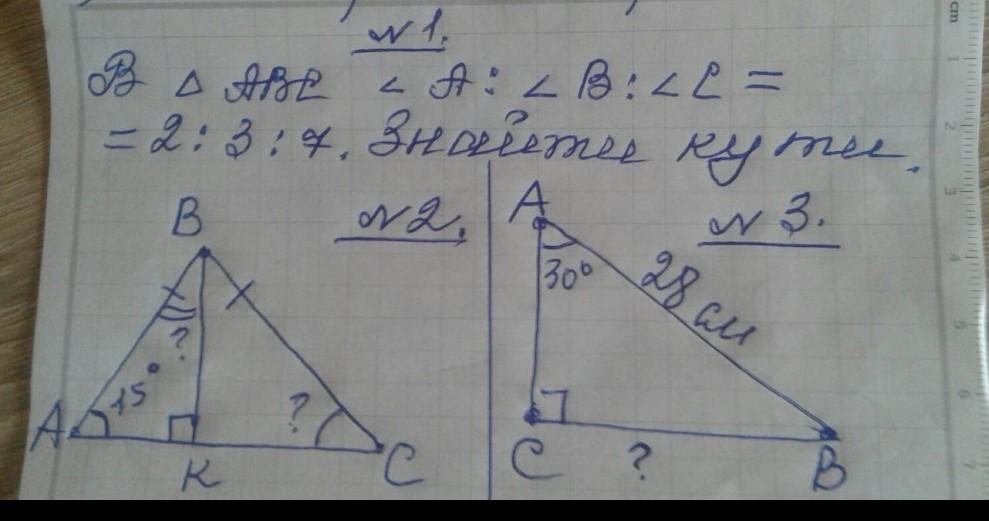 №1.
В △ ABC < A : < B : < C =
= 2 : 3 : 7. Знайти кути.
№2.
B
?
15°
?
A
K
C
№3.
A
30°
28 см
C
?
B
cm
1
2
3
4
5
6
7